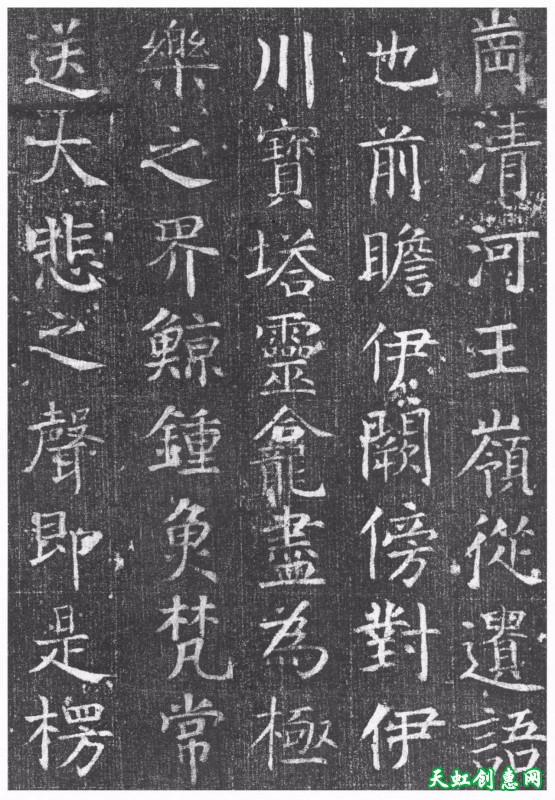 崗清河王嶺從遺語
也前瞻伊闕傍對伊
川寶塔靈龕盡為極
樂之界鯨鍾魚梵常
送大悲之聲即是楞
天虹创惠网